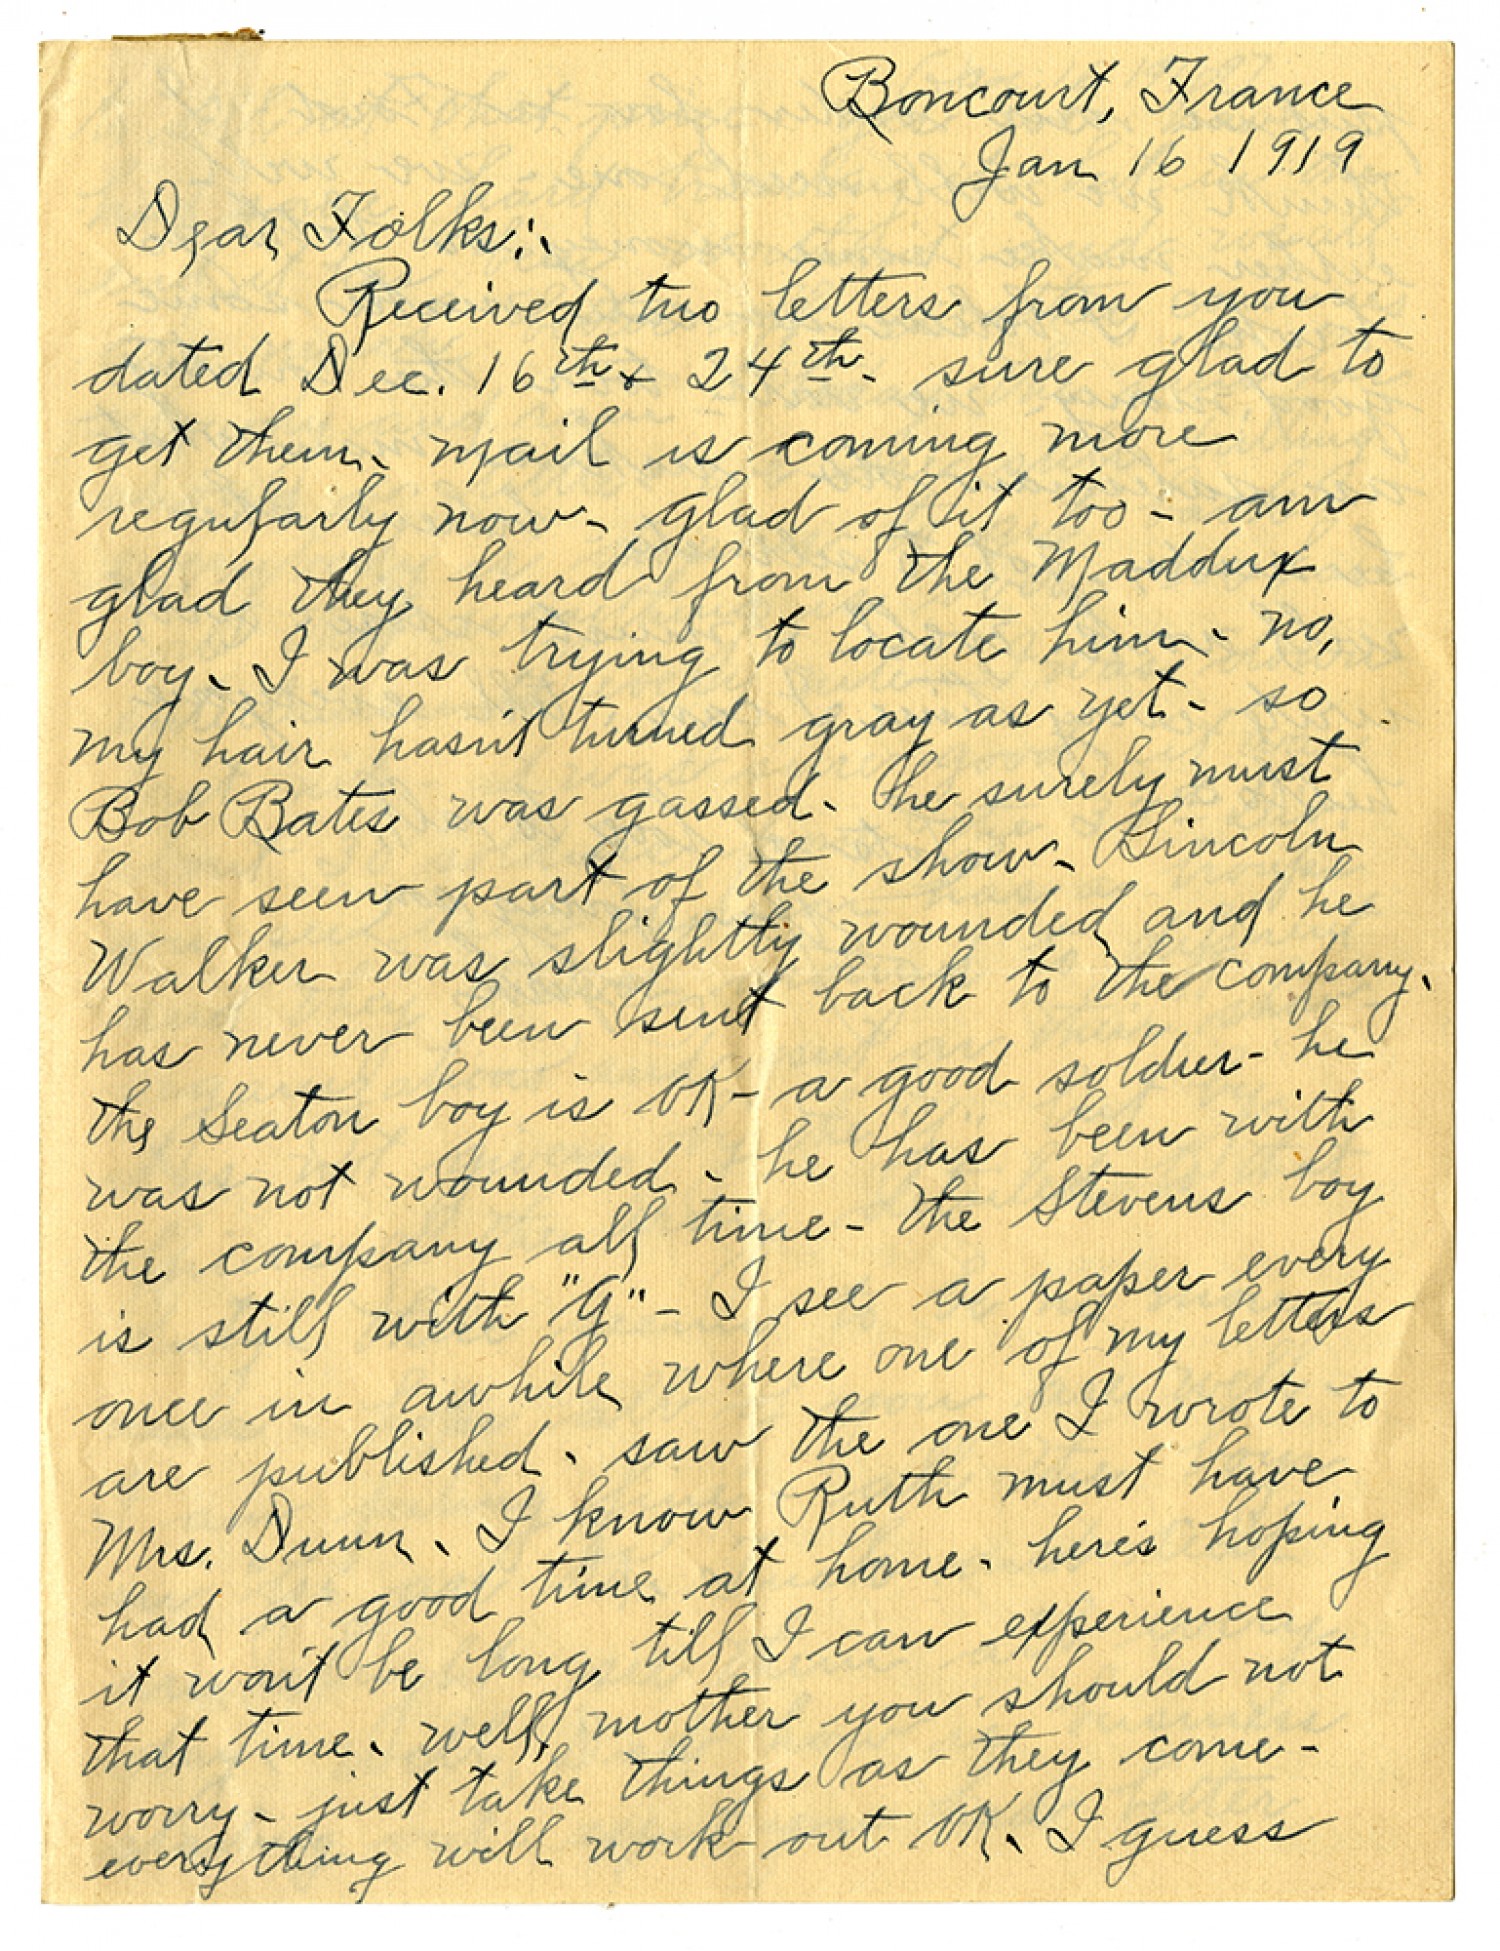 Boncourt, France
Jan 16 1919
Dear Folks:-
Received two letters from you
dated Dec. 16th + 24th - sure glad to
get them - mail is coming more
regularly now - glad of it too - am
glad they heard from the Maddux
boy - I was trying to locate him - no,
my hair hasn't turned gray as yet - so
Bob Bates was gassed - he surely must
have seen part of the show - Lincoln
Walker was slightly wounded and he
has never been sent back to the company -
the Seaton boy is OK - a good soldier - he
was not wounded - he has been with
the company all time - the Stevens boy
is still with "G" - I see a paper every
once in awhile where one of my letters
are published - saw the one I wrote to
Mrs. Dunn - I know Ruth must have
had a good time at home - here's hoping
it won't be long till I can experience
that time - well, mother you should not
worry - just take things as they come -
everything will work out OK - I guess